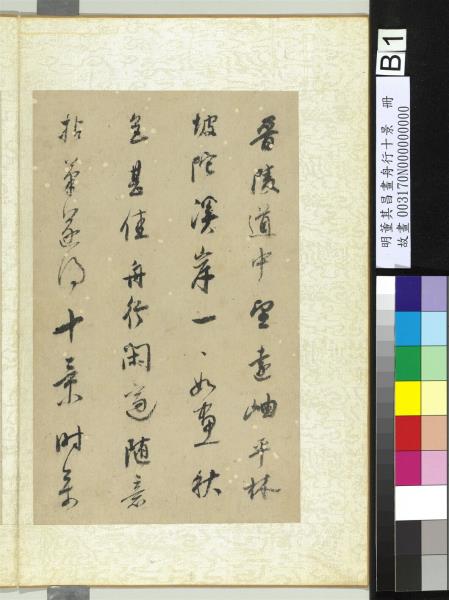 晉陵道中望遠岫平林
坡陀溪岸一丶如畫秋
色甚佳舟行閒適隨意
拈筆遂得十景時
B1
明董其昌畫舟行十景 冊
故畫 003170N000000000